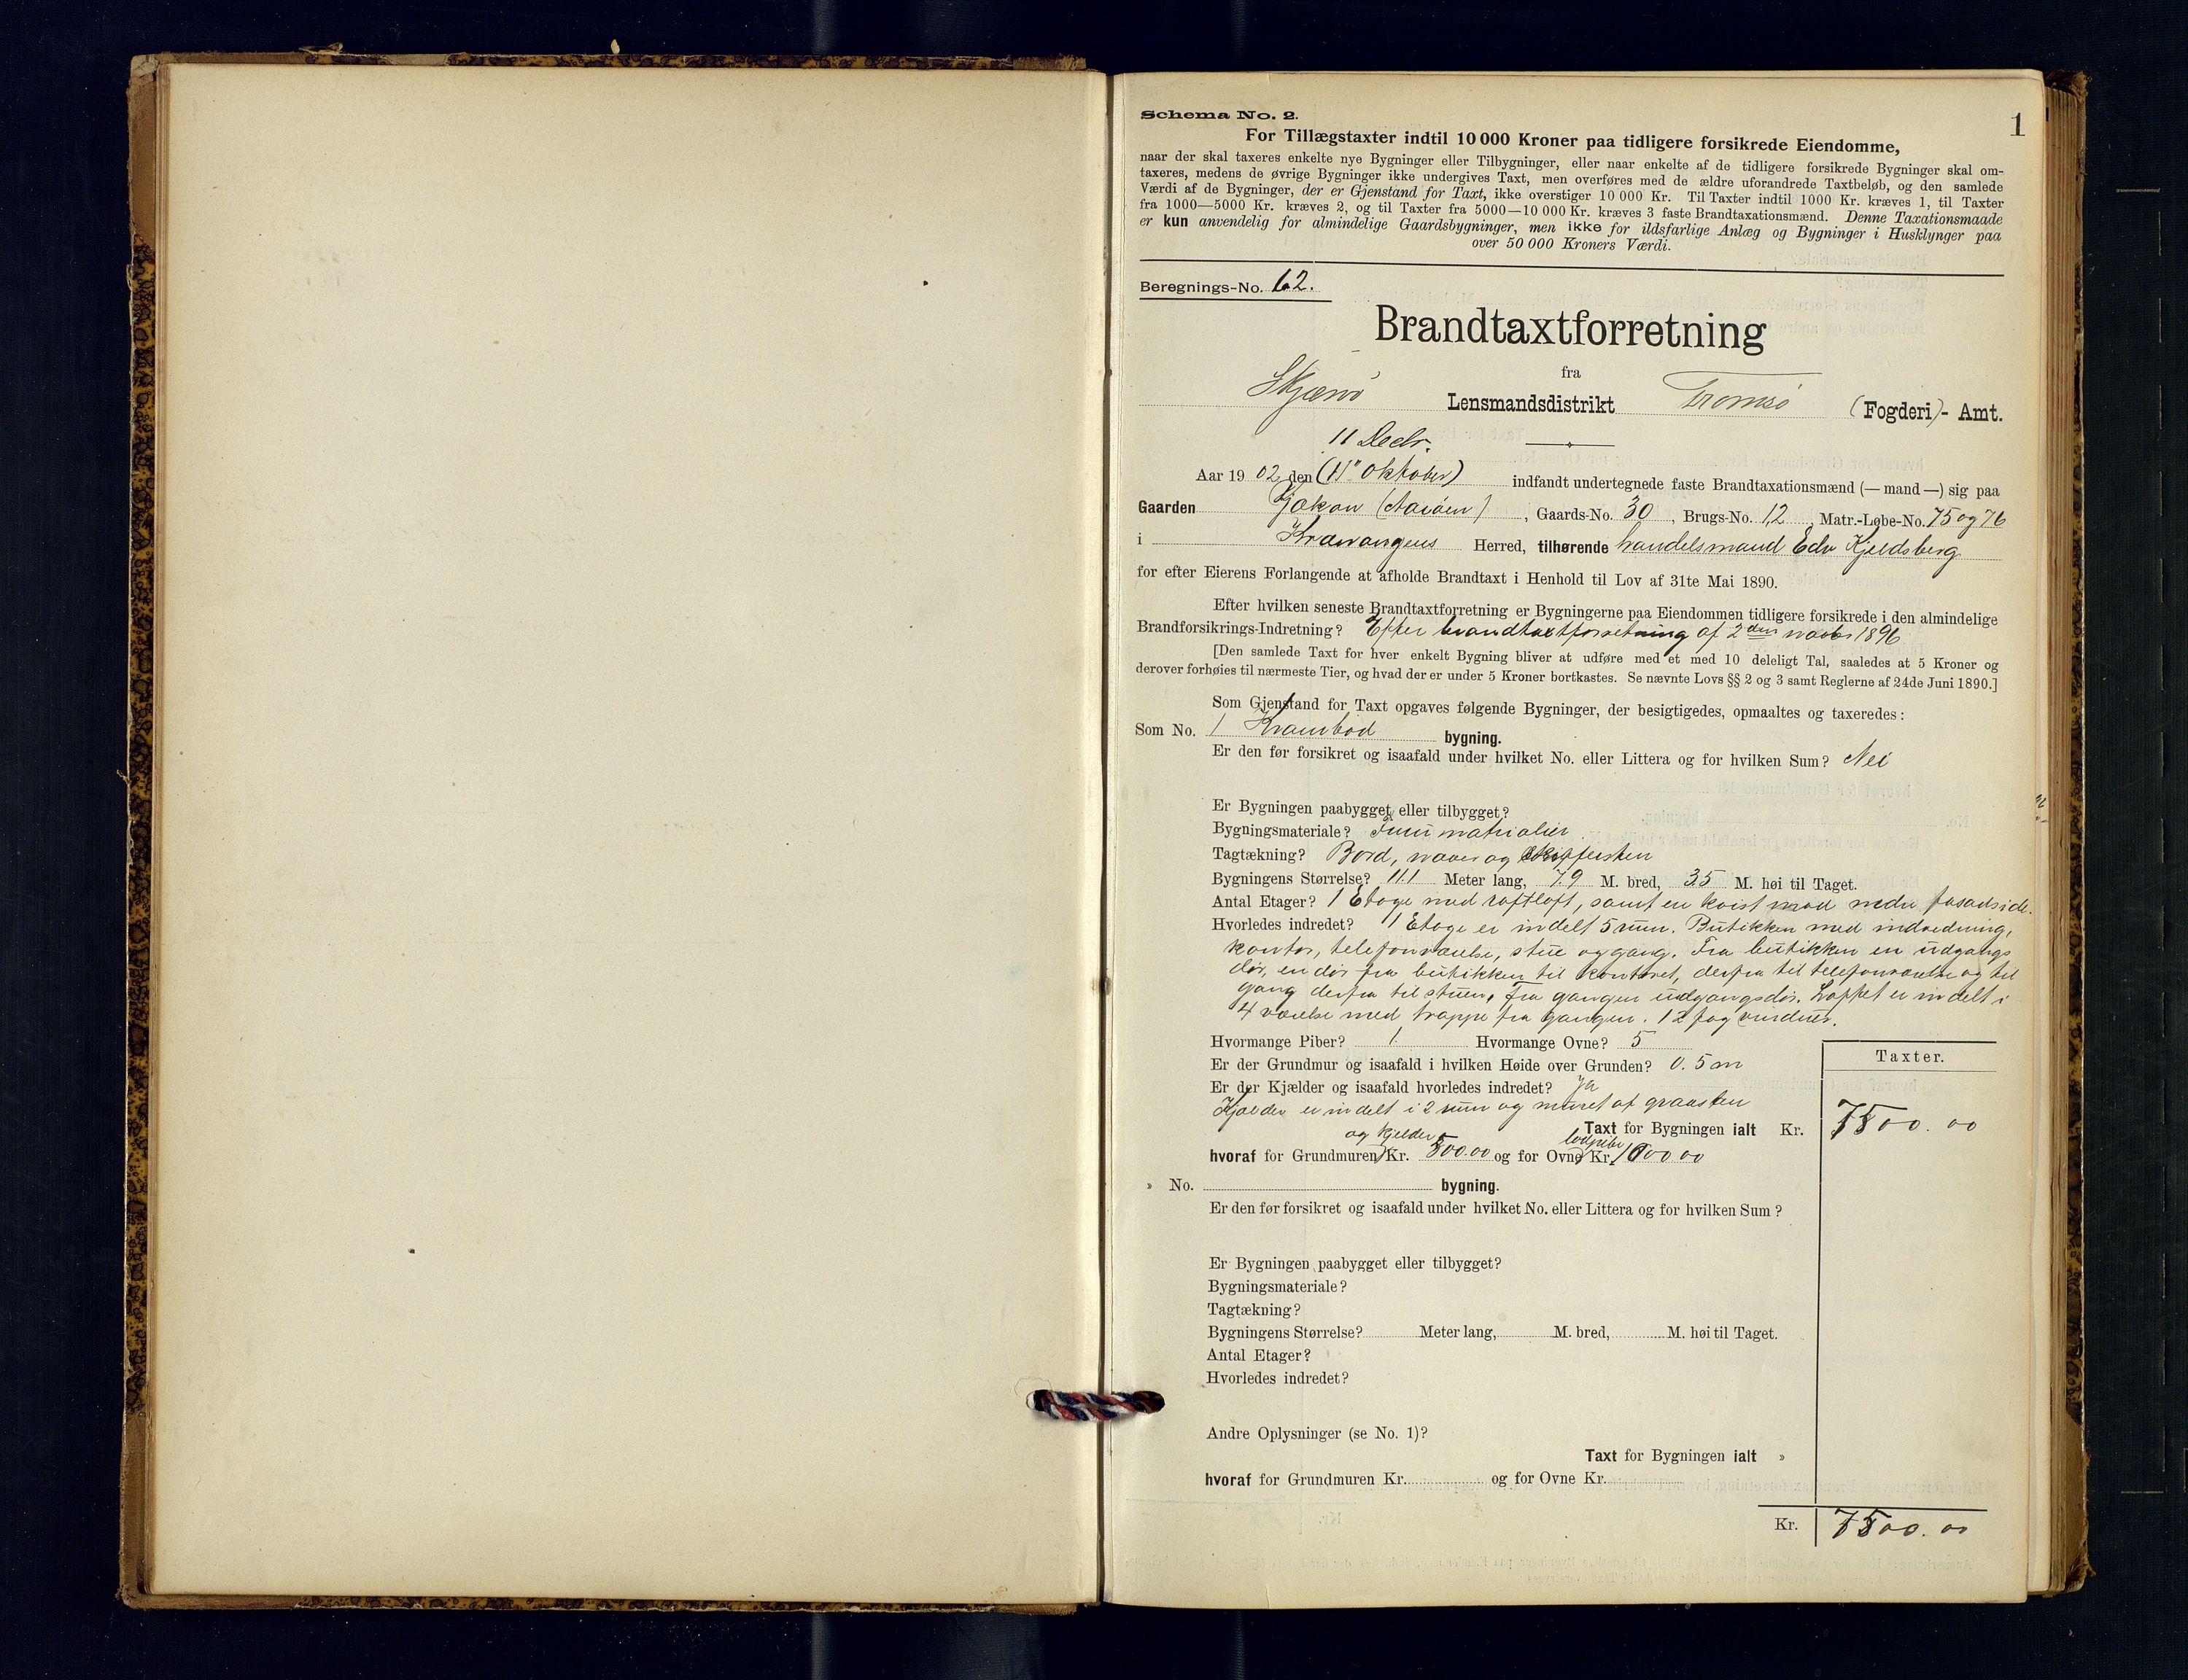 1
Schema No. 2.
For Tillægstaxter indtil 10 000 Kroner paa tidligere forsikrede Eiendomme,
naar der skal taxeres enkelte nye Bygninger eller Tilbygninger, eller naar enkelte af de tidligere forsikrede Bygninger skal om-
taxeres, medens de øvrige Bygninger ikke undergives Taxt, men overføres med de ældre uforandrede Taxtbeløb, og den samlede
Værdi af de Bygninger, der er Gjenstand for Taxt, ikke overstiger 10 000 Kr. Til Taxter indtil 1000 Kr. kræves 1, til Taxter
fra 1000—5000 Kr. kræves 2, og til Taxter fra 5000—10 000 Kr. kræves 3 faste Brandtaxationsmænd. Denne Taxationsmaade
er kun anvendelig for almindelige Gaardsbygninger, men ikke for ildsfarlige Anlæg og Bygninger i Husklynger paa
over 50 000 Kroners Værdi.
Beregnings-No. 62.
Brandtaxtforretning
fra
Skjærvø Lensmandsdistrikt Tromsø (Fogderi)- Amt.
11 Decbr.
Aar 1902 den (11' oktober) indfandt undertegnede faste Brandtaxationsmænd (— mand —) sig paa
Gaarden , Gaards-No. 30 , Brugs-No. 12 , Matr.-Løbe-No. 75 og 76
i Kvænangens Herred, tilhørende handelsmand Edv Kjeldsberg
for efter Eierens Forlangende at afholde Brandtaxt i Henhold til Lov af 31te Mai 1890.
Efter hvilken seneste Brandtaxtforretning er Bygningerne paa Eiendommen tidligere forsikrede i den almindelige
Brandforsikrings-Indretning? Efter brandtaxtforretning af 2den novbr 1896
[Den samlede Taxt for hver enkelt Bygning bliver at udføre med et med 10 deleligt Tal, saaledes at 5 Kroner og
derover forhøies til nærmeste Tier, og hvad der er under 5 Kroner bortkastes. Se nævnte Lovs §§ 2 og 3 samt Reglerne af 24de Juni 1890.]
Som Gjenstand for Taxt opgaves følgende Bygninger, der besigtigedes, opmaaltes og taxeredes:
Som No. 1 Krambod bygning.
Er den før forsikret og isaafald under hvilket No. eller Littera og for hvilken Sum? Nei
Er Bygningen paabygget eller tilbygget?
Bygningsmateriale?
Tagtækning? Bord, næver og skiffersten
Bygningens Størrelse? 11.1 Meter lang, 7.9 M. bred, 3.5 M. høi til Taget.
Antal Etager? 1 Etage med roftloft, samt en kvist mod nedre fasadside.
Hvorledes indredet? 1 Etage er indelt 5 rum. Butikken med indredning,
kontor, telefonværelse, stue og gang. Fra butikken en udgangs
dør, en dør fra butikken til kontoret, derfra til telefonværelse og til
gang derfra til stuen, fra gangen udgangsdør. Loftet er indelt i
4 værelse med trappe fra gangen. 12 fag vinduer.
Hvormange Piber? 1. Hvormange Ovne? 5
Er der Grundmur og isaafald i hvilken Høide over Grunden? 0.5 m
Er der Kjælder og isaafald hvorledes indredet? Ja
Kjælder er indelt i 2 rum og muret af graasten
Taxter.
Taxt for Bygningen ialt Kr. 7500.00
og kjelder
hvoraf for Grundmuren Kr. 500.00 og for Ovne Kr.
» No. bygning.
Er den før forsikret og isaafald under hvilket No. eller Littera og for hvilken Sum?
Er Bygningen paabygget eller tilbygget?
Bygningsmateriale?
Tagtækning?
Bygningens Størrelse? Meter lang, M. bred, M. høi til Taget.
Antal Etager?
Hvorledes indredet?
Andre Oplysninger (se No. 1)?
Taxt for Bygningen ialt »
hvoraf for Grundmuren Kr. og for Ovne Kr.
Kr. 7500.00